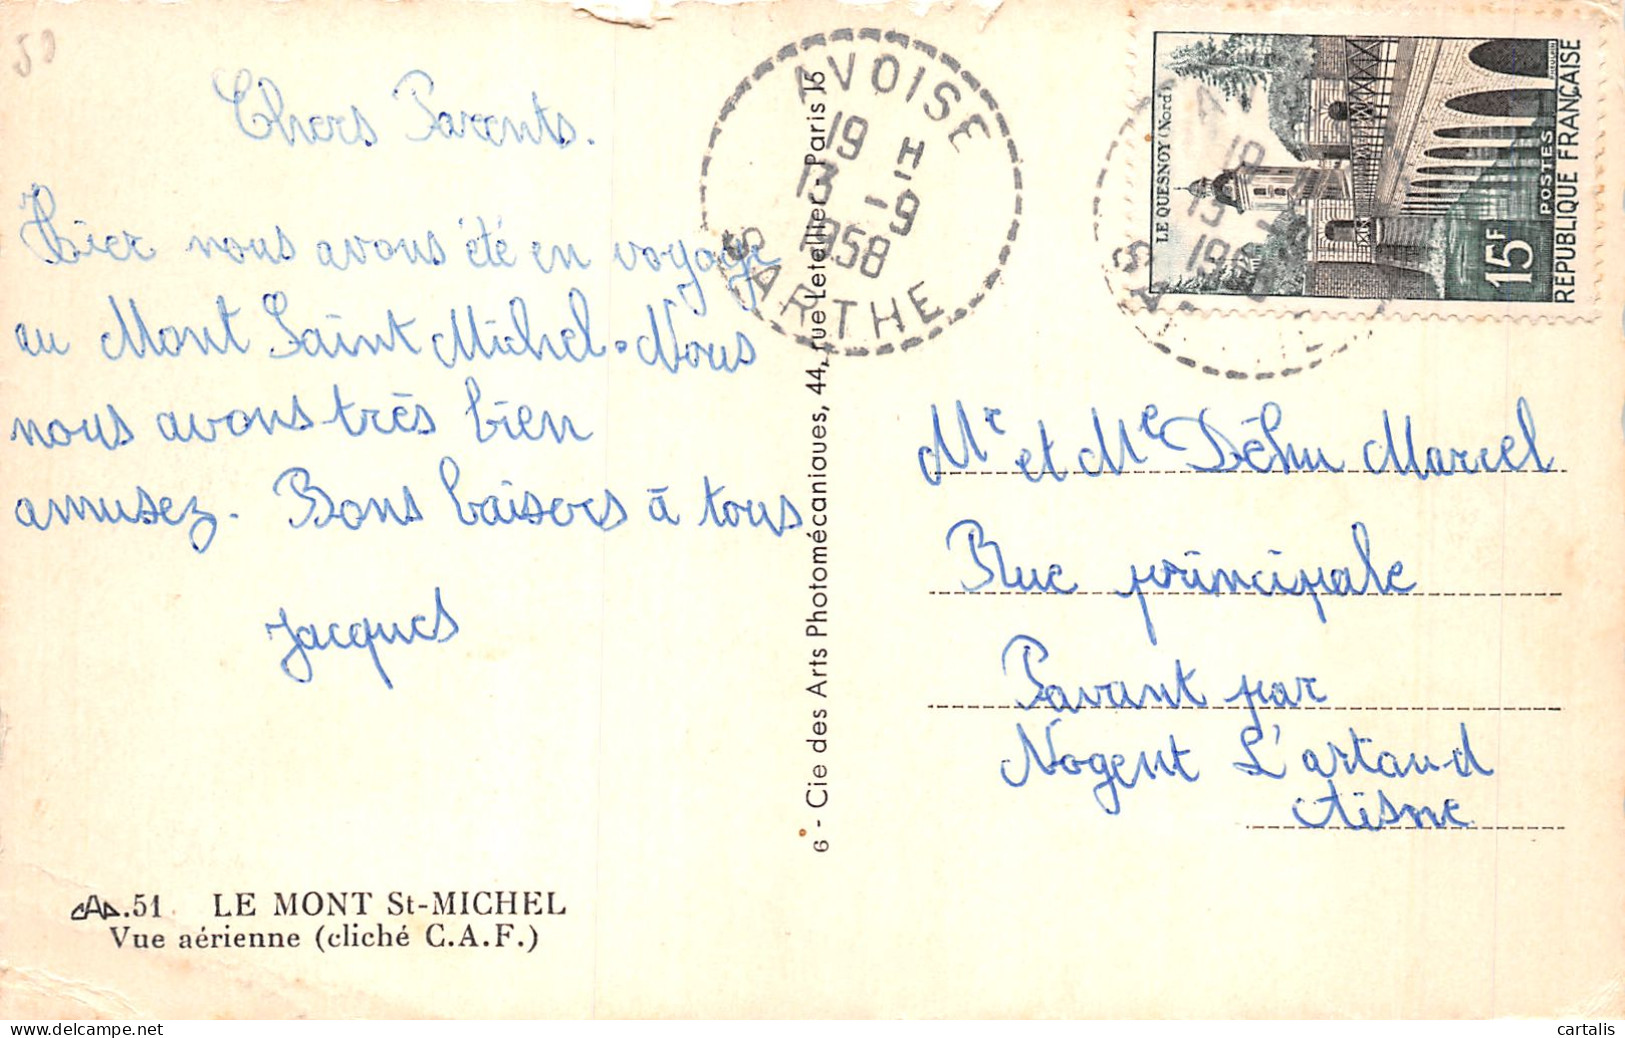 50
Chers Parents.
Hier nous avous été en voyage
au Mont Saint Michel. Nous
nous avons très bien
amusez. Bons baisers à tous
Jacques
CAP.51 LE MONT St-MICHEL
Vue aérienne (cliché C.A.F.)
6 - Cie des Arts Photomécaniques, 44, rue Letellier - Paris 15
AVOISE
19 H
13 -9
1958
SARTHE
LE QUESNOY (Nord)
15F
POSTES
REPUBLIQUE FRANÇAISE
Mr et Me Déhu Marcel
Rue principale
Pavant par
Nogent L'artaud
Aisne
cartalis